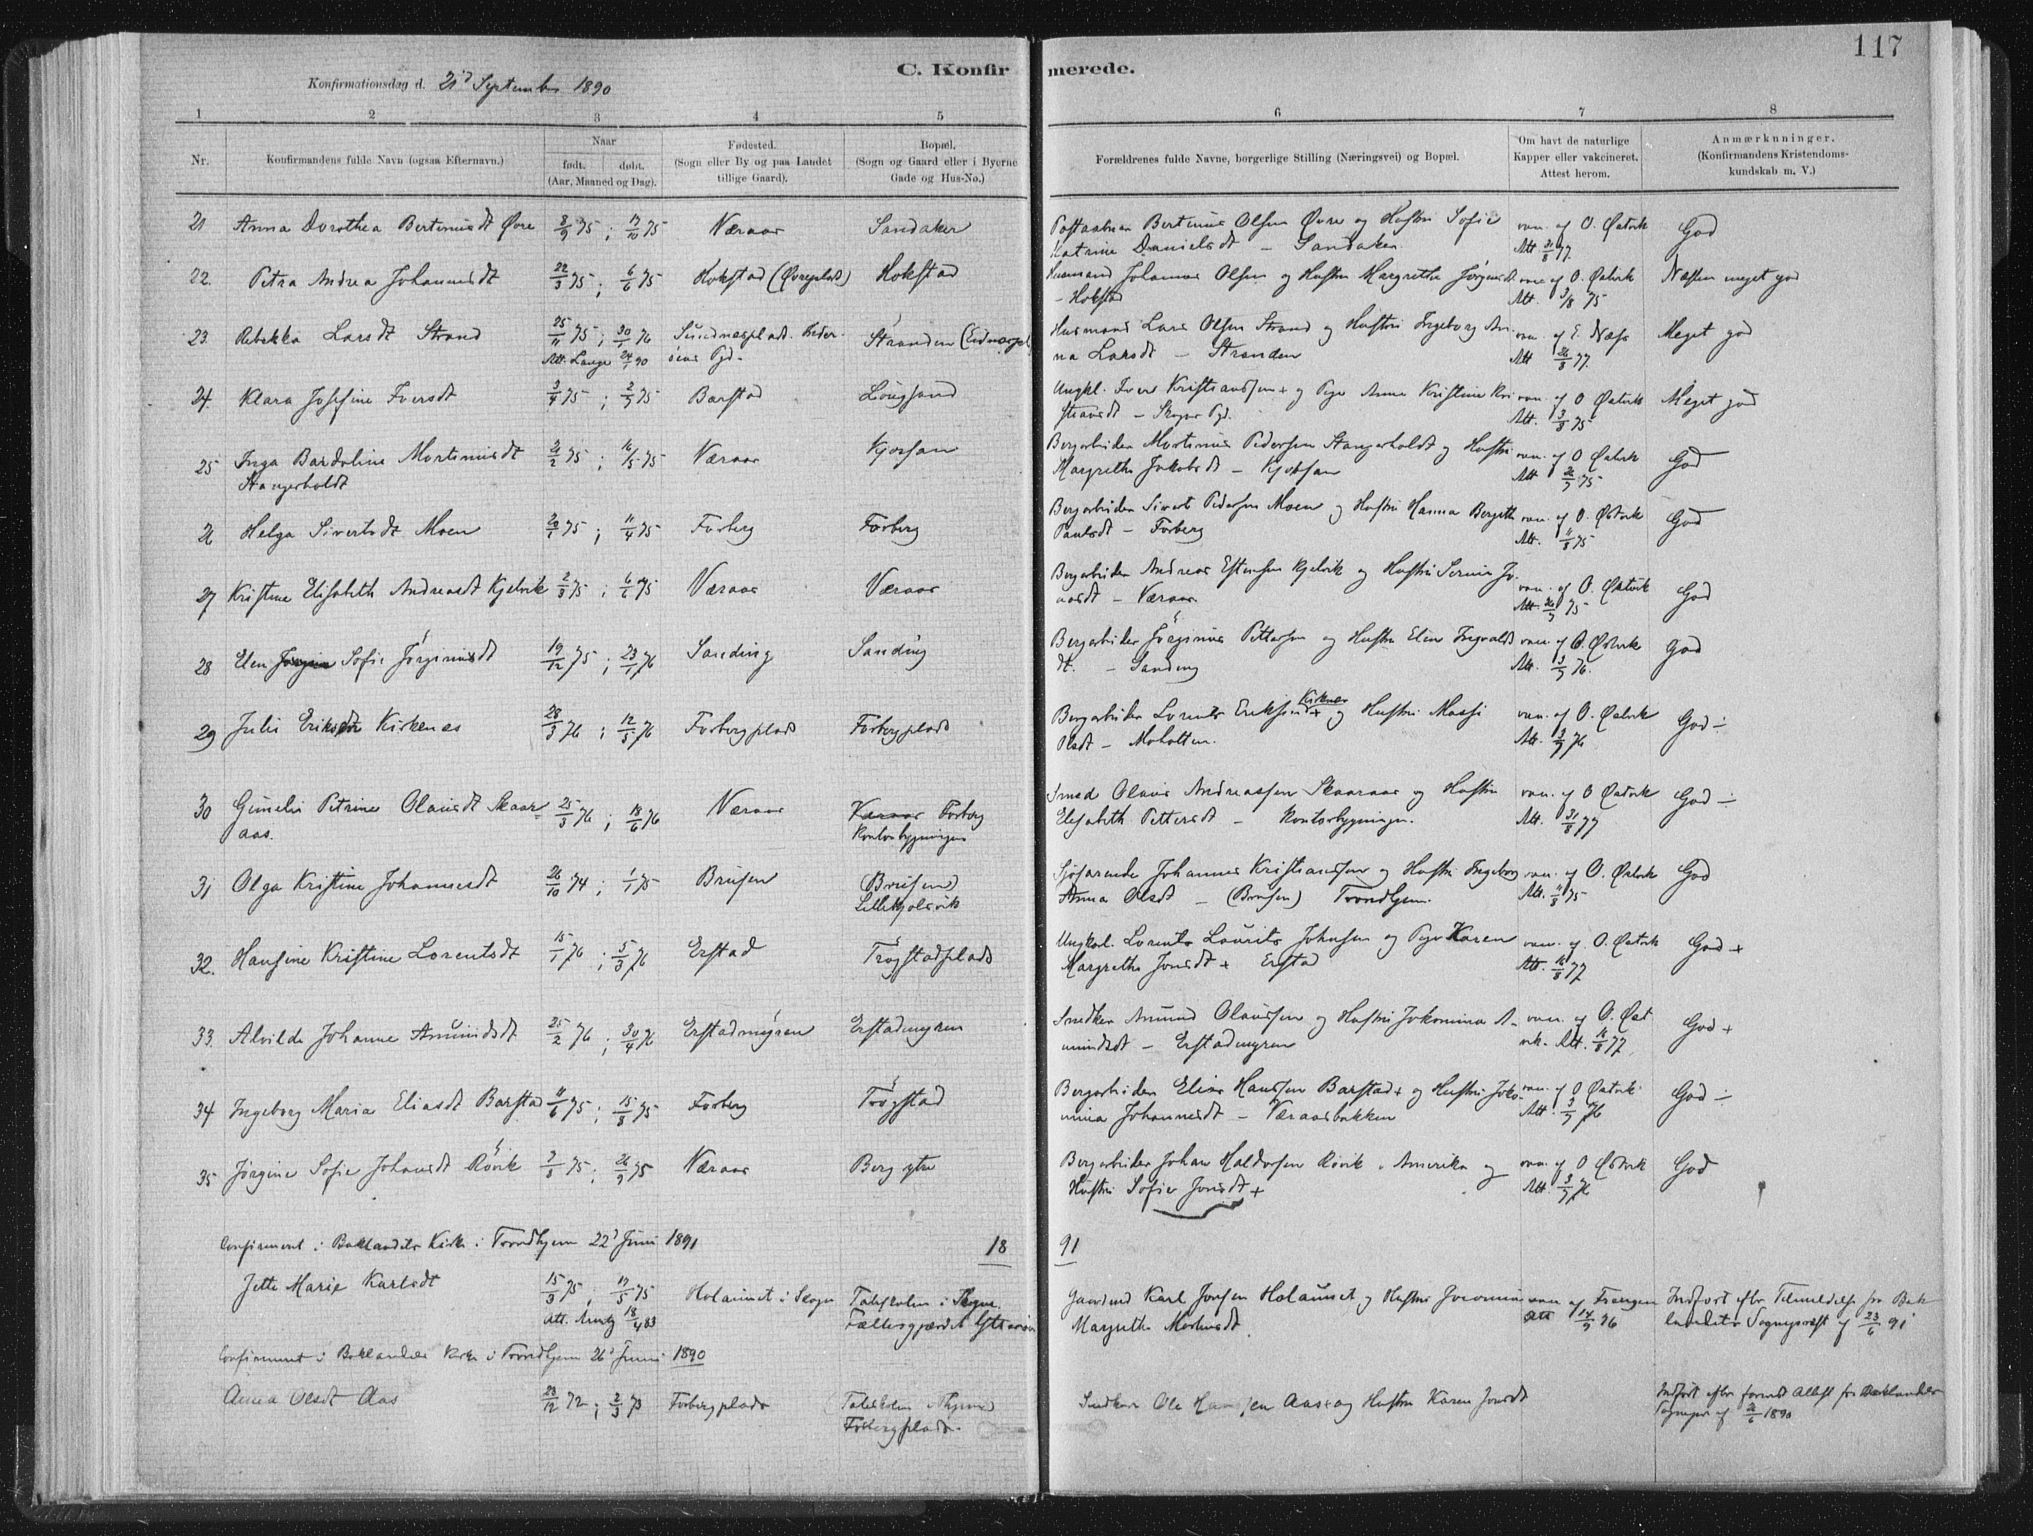 117
C. Konfirmerede.
Konfirmationsdag d. 21d September 1890
1 2 3 4 5 6 7 8
Nr.
Konfirmandens fulde Navn (ogsaa Efternavn.)
Naar
født. døbt.
(Aar, Maaned og Dag).
Fødested.
(Sogn eller By og paa Landet
tillige Gaard).
Bopæl.
(Sogn og Gaard eller i Byerne
Gade og Hus-No.)
Forældrenes fulde Navne, borgerlige Stilling (Næringsvei) og Bopæl.
Om havt de naturlige
Kopper eller vakcineret.
Attest herom.
Anmærkninger.
(Konfirmandens Kristendoms-
kundskab m. V.)
21 Anna Dorothea Bertinusdt Øvre 8/9 75 ; 17/10 75 Næraas Sandaker Bertinus Olsen Øvre og Hustru Sofie vac. af O. Østvik God
Katrine Danielsdt – Sandaker Att 31/8 77.
22. Petra Andrea Johannesdt 22/3 75 ; 6/6 75 Hokstad (Øvreplads) Hokstad Husmand Johannes Olsen og Hustru Margrethe Jørgensdt vac. af O. Østvik Næsten meget god
– Hokstad Att. 3/8 75
23. Rebekka Larsdt Strand 25/11 75 ; 30/1 76 Stranden Husmand Lars Olsen Strand og Hustru Ingeborg An- vac. af E. Næss Meget god
Att. Lange 24/1 90 öens Pgd. na Larsdt – Stranden Att 26/8 77.
24. Klara Josefine Iversdt 3/4 75 ; 2/7 75 Barstad Löngsand Ungkl. Iver Kristiansen + og Pige Anna Kristine Kri- vac. af O Østvik Meget god
stiansdt – Skogn Pgd. Att. 3/8 75
25 Inga Bardoline Mortinusdt 21/2 75 ; 16/5 75 Næraas Kjossan Bergarbeider Mortinus Pedersen Stangerholdt og Hustru vac. af O Østvik God
Stangerholdt Margrethe Jakobsdt – Kjossan Att 26/7 75
26 Helga Sivertsdt Moen 20/1 75 ; 11/4 75 Forberg Forberg Bergarbeider Sivert Pedersen Moen og Hustru Hanna Bergitte vac. af O. Østvik God
Paulsdt – Forberg Att. 11/8 75
27 Kristine Elisabeth Andreasdt Kjelvik 2/3 75 ; 6/6 75 Næraas Næraas Bergarbeider Andreas Estensen Kjelvik og Hustru Serine Jo- vac. af O. Østvik God
– Næraas Att. 26/7 75
28 Elen Sofie Jørginusdt 19/12 75 ; 23/1 76 Sanding Sanding Bergarbeider Jörginus Pettersen og Hustru Elen Ingvalds vac. af O. Østvik God
dt. – Sanding Att. 3/7 76.
29 Julie Eriksdt Kirkenes 28/3 76 ; 12/5 76 Forbergplads Forbergplads Bergarbeider Lorents Eriksen Kirknes + og Hustru vac. af O. Østvik God ÷
Olsdt – Moholtten. Att. 3/7 76
30 Gunelie Petrine Olausdt Skaar- 25/3 76 ; 18/6 76 Næraas Næraas Forberg Smed Olaus Andreassen Skaaraas og Hustru vac. af O Østvik God ÷
aas. Kontorbygningen Elisabeth Pettersdt – Kontorbygningen. Att. 31/8 77
31 Olga Kristine Johannesdt 26/10 74 ; 1/1 75 Brusen (Brusen) Sjöfarende Johannes Kristiansen og Hustru Ingeborg vac. af O. Østvik God
Anna Olsdt – (Brusen) Trondhjem. Att. 11/8 75
32. Hansine Kristine Lorentsdt 15/1 76 ; 5/3 76 Erstad Trøgstadplads Ungkarl Lorents Laurits Johnsen og Pige Karen vac. af O. Østvik God +
Margrethe Jonsdt + Erstad Att. 16/8 77
33. Alvilde Johanne Amundsdt 25/2 76 ; 30/4 76 Erstadmyren Erstadmyren Snedker Amund Olaussen og Hustru Jokomina A- vac. af O. Øst God +
mundsdt – Erstadmyren vik. Att. 16/8 77
34 Ingeborg Maria Eliasdt Barstad 11/6 75 ; 15/8 75 Forberg Trøgstad Bergarbeider Elias Hansen Barstad + og Hustru Joko- vac. af O Østvik God ÷
mina Johannesdt – Næraasbakken Att. 3/7 76
35 Jørgine Sofie Johansdt Røvik 75 ; 26/9 75 Næraas Berg ytre Bergarbeider Johan Haldorsen Røvik i Amerika og vac. af O Østvik God
Hustru Sofie Jonsdt + Att. 3/7 76
Confirmeret i Baklandets Kirke i Trondhjem 22d Juni 1891
1891
Jette Marie Karlsdt 15/3 75 ; 17/5 75 Holaunet i Skogn Gaardmd Karl Jonsen Holaunet og Hustru vac. af Indført efter Tilmeldelse fra Bak
Att. 18/4 83 Margrethe Att 14/9 76 landets Sognepræst af 23/6 91
Confirmeret i Baklandets Kirke i Trondhjem 26d Juni 1890
Anna Olsdt Aas 23/12 72 ; 2/3 73 Forbergplads Snedker Ole Hansen Aas + og Hustru Karen Jonsdt Indført efter Attest fra Baklandets
Forbergplads. af 26/6 1890